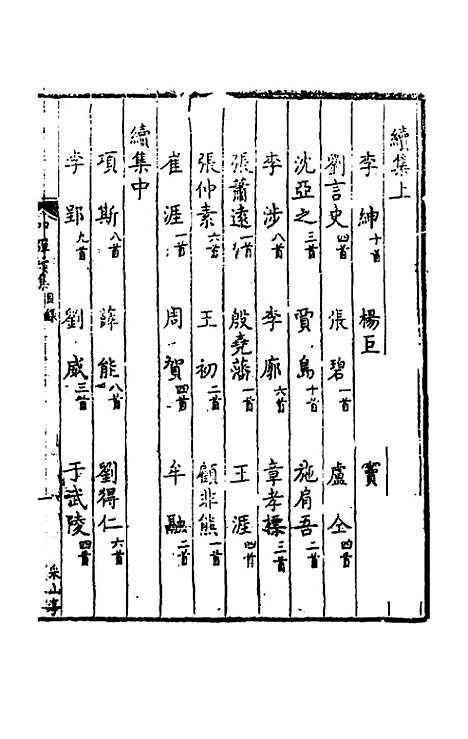 續集上
李紳十首 楊巨 竇
劉言史四首 張碧一首 盧仝四首
沈亞之三首 賈島十首 施肩吾二首
李涉八首 李廓六首 章孝標三首
張蕭遠一首 殷堯藩一首 王涯四首
張仲素六首 王初二首 顧非熊一首
崔涯一首 周賀四首 牟融二首
續集中
項斯八首 薛能八首 劉得仁六首
李郢九首 劉威三首 于武陵四首
集目錄